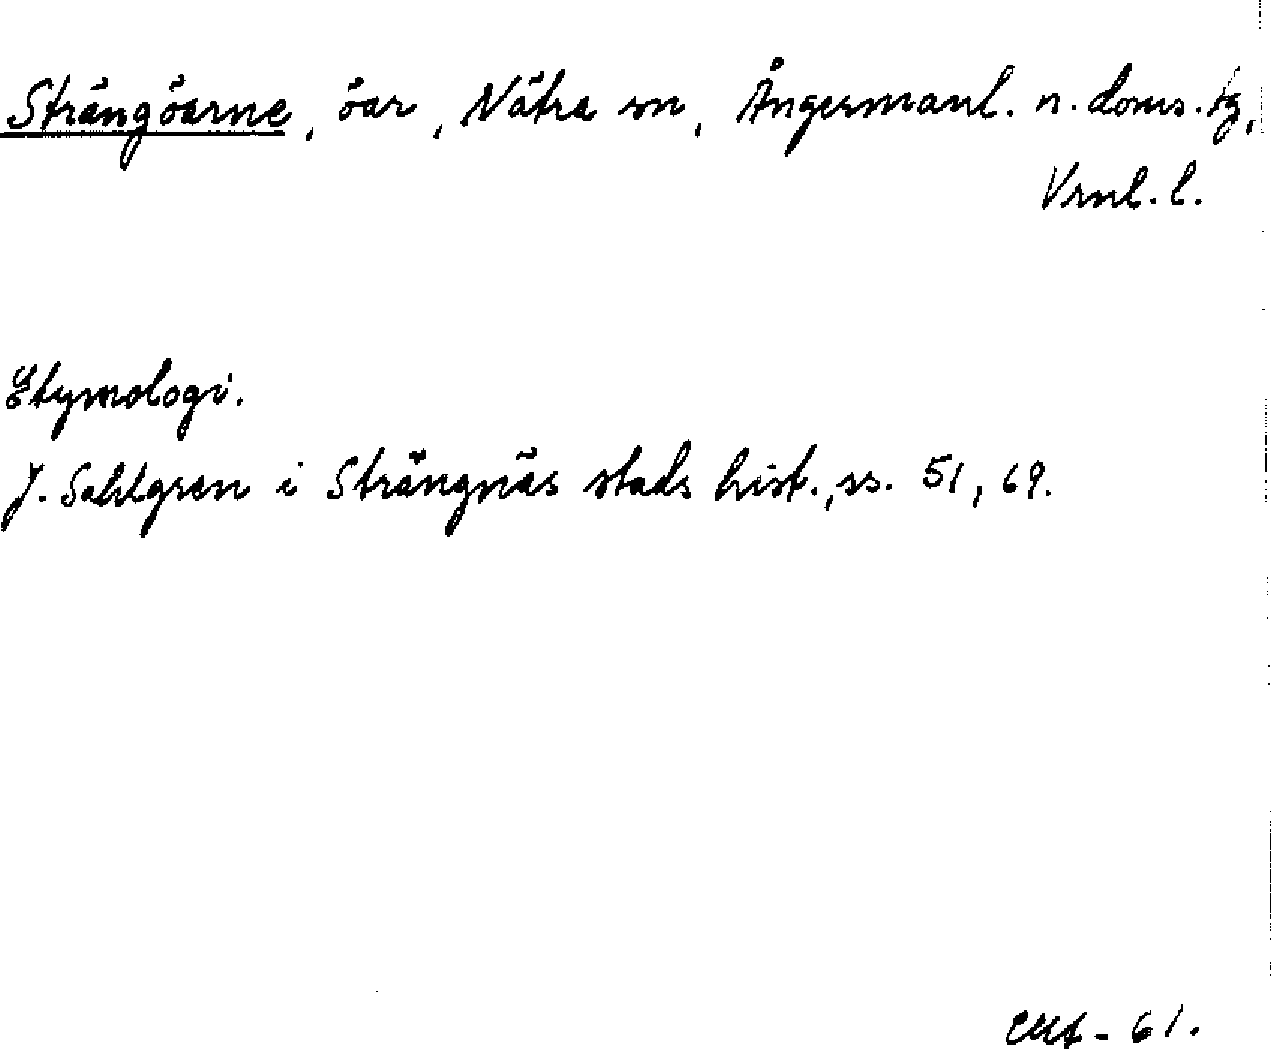 Strängöarne, öar, Nätra sn, Ångermanl. n. doms. tg,
Vrnl. l.
Etymologi.
J. Sahlgren i Strängnäs stads hist., ss. 51, 69.
61.